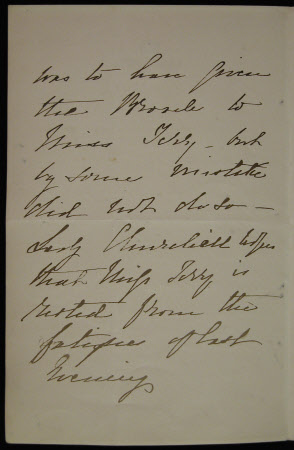 was to have given
the Brooch to
Miss Terry - but
by some mistake
did not do so -
Lady Churchill hopes
that Miss Terry is
rested from the
fatigues of last
Evening